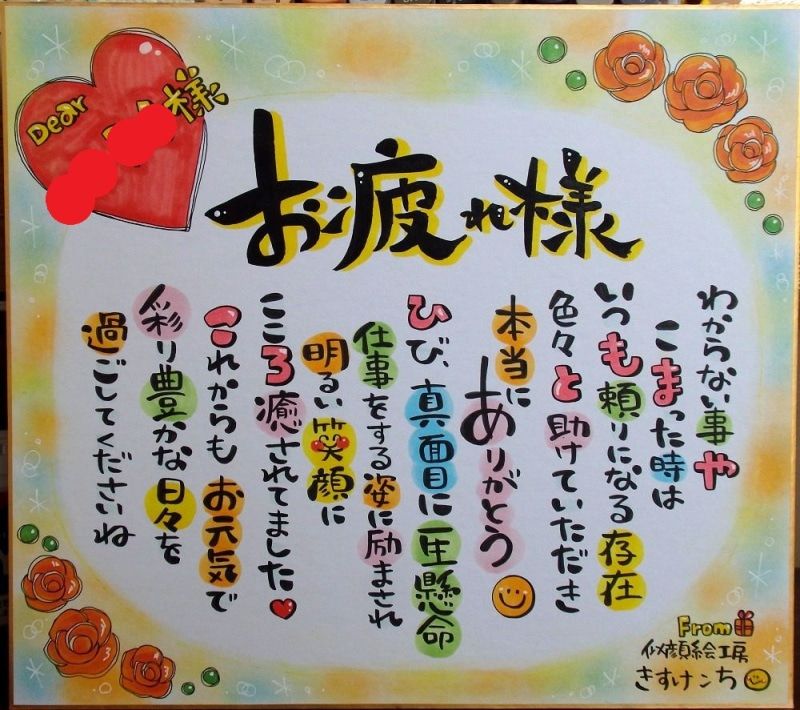 Dear
様
お疲れ様
わからない事や
こまった時は
いつも頼りになる存在
色々と助けていただき
本当にありがとう
ひび、真面目に一生懸命
仕事をする姿に励まされ
明るい笑顔に
こころ癒されてました
これからもお元気で
彩り豊かな日々を
過ごしてくださいね
From
似顔絵工房
きすけンち